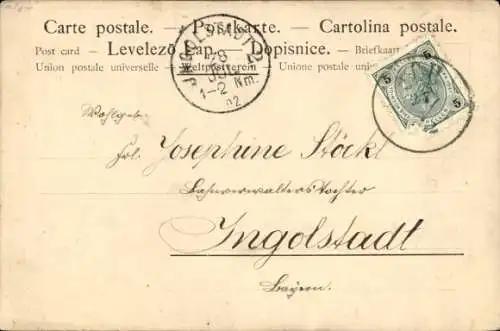 Carte postale. — Postkarte. — Cartolina postale.
Post card — Levelező Lap. — Dopisnice. — Briefkaart
Union postale universelle — Weltpostverein — Unione postale
INGOLSTADT 2
1-2 Nm.
02
5 5
Wohlgeb.
Frl. Josephine Stöckl
Bahnverwalterstochter
Ingolstadt
Bayern.